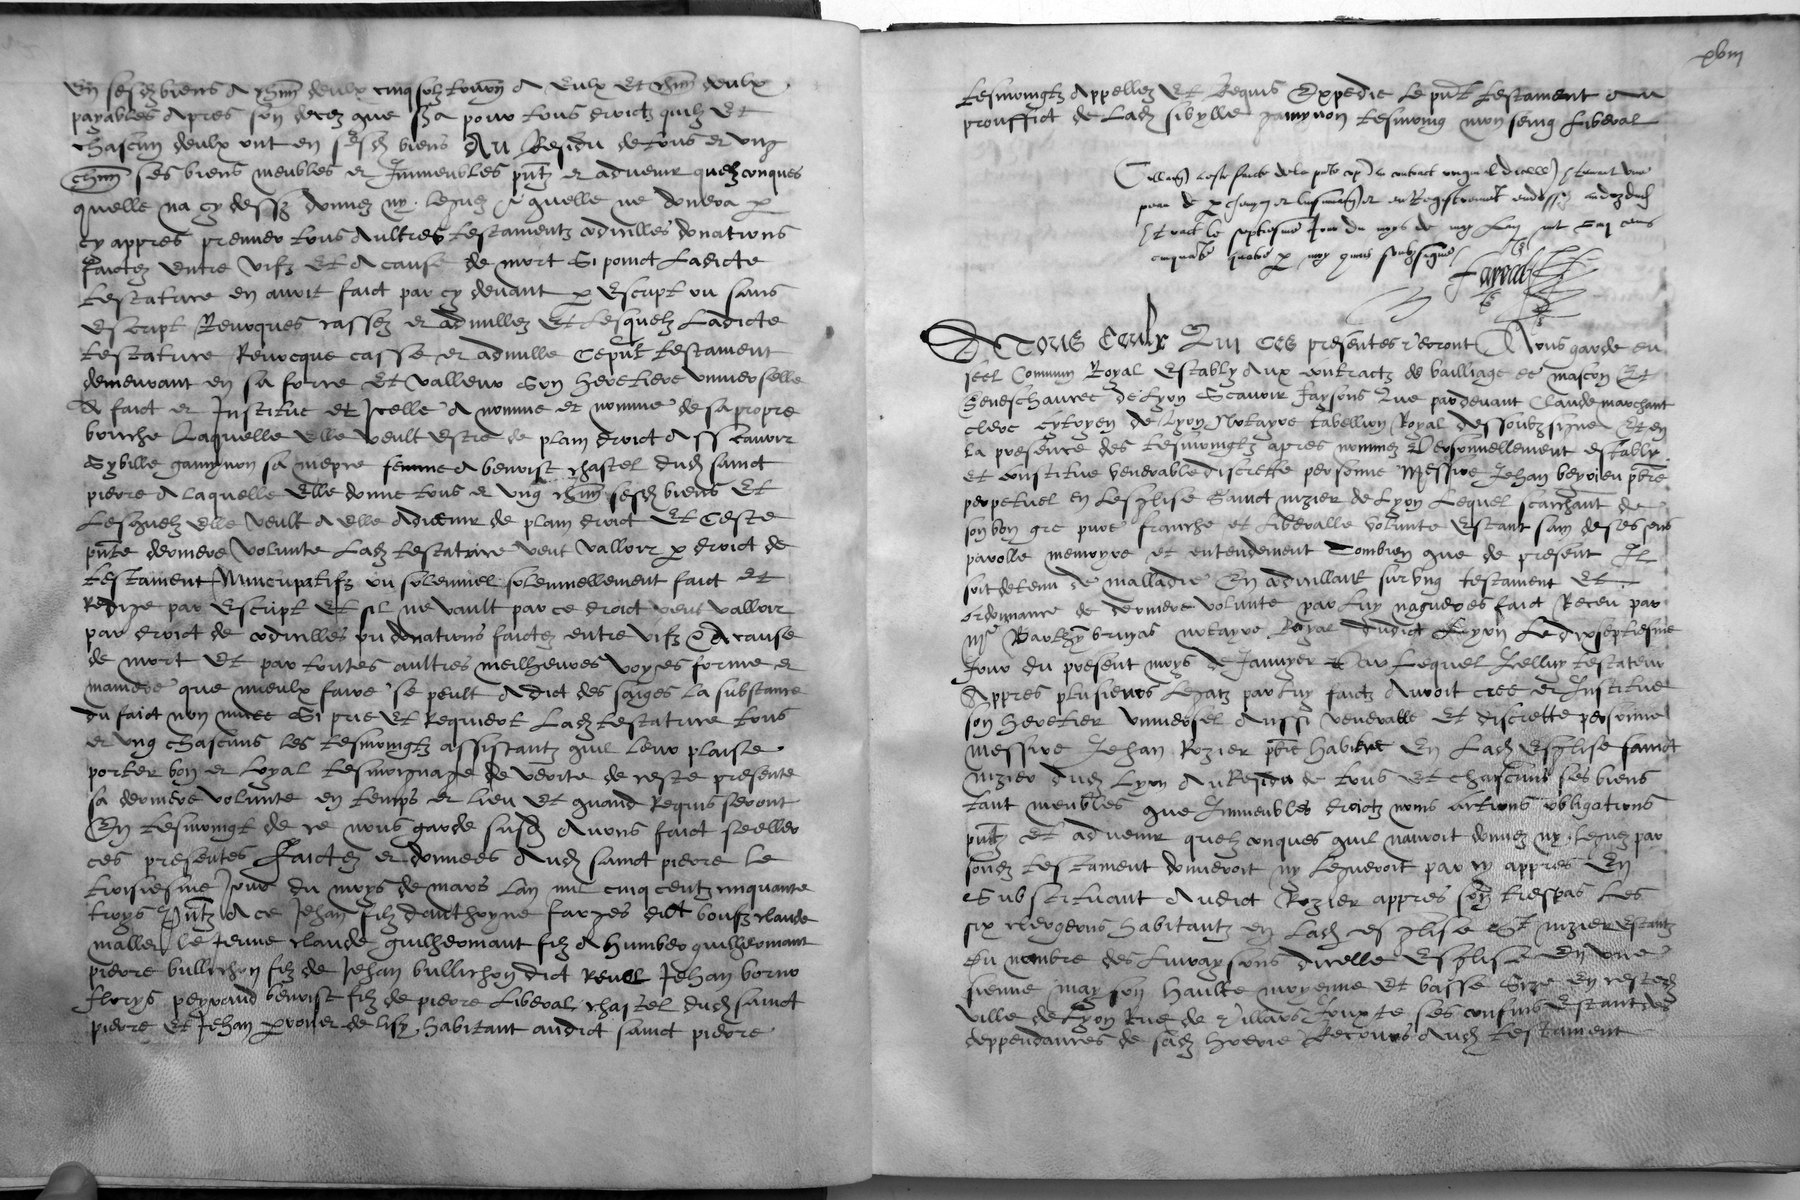 En sesdz biens A chun deulx cinq solz tourn A Eulx Et chun deulx
payables Apres son decez que sa pour tous droictz quilz Et
chascun deulx ont en sesdz biens Au Residu de tous er ung
chun ses biens meubles er Immeubles pntz er advenir quelz conques
quelle na cy dessz donnez ny leguez quelle ne donera p
cy appres premier tous Aultres testamentz codicilles donations
faictez entre vifz Et A cause de mort Si poinct Ladicte
testatrice en avoit faict par cy devant p Escript ou sans
Escript Revoques cassez er adnullez Et Lesquelz Ladicte
testatrice Revocque casse er adnulle Cepnt testament
demeurant en sa force Et valleur Son heretiere universelle
A faict er Institue et Icelle A nomme et nomme de sa propre
bouche Laquelle Elle veult Estre de plain droict Asscavoir
Sybille gannyuon sa niepce femme A benoist chastel dudz sainct
pierre A laquelle Elle donne tous er ung chun sesdz biens Et
Lesquelz Elle veult A Elle Advenir de plain droict Et Ceste
pnte derniere volunte Ladz testatrice veut valloir p droict de
testament Nuncupatifz ou solennel solennellement faict et
Redige par Escript Et sil ne vault par ce droict veut valloir
par droict de codicilles ou donations faictez entre vifz A cause
de mort Et par toutes aultres meilheures voyes forme er
maniere que mieulx faire se peult A dict des saiges La substance
du faict non muee Si prie Et Requiert Ladz testatrice tous
er ung chascuns les tesmoingtz assistantz quil leur plaise
porter bon er Loyal tesmoignage de verite de ceste presente
sa derniere volunte en temps er lieu Et quand Requis seront
En tesmoingt de ce nous garde susdz Avons faict seeller
ces presentes Faictez er donnees Audz sainct pierre le
troisiesme Jour du moys de mars Lan mil cinq centz cinquante
troys Pntz A ce Jehan filz danthoyne farges dict bonfz claude
mallier le Jeune claude guilhermant filz A humber guilhermant
pierre bullichon filz de Jehan bullichon dict Revel Jehan borno
florys peyraud benoist filz de pierre Liberal chastel dudz sainct
pierre Et Jehan habitant audict sainct pierre
xviii
tesmoingtz Appellez Et Requis Expedie Le pnt testament Au
prouffict de Ladz sibylle gannyuon tesmoing mon seing Liberal
Collaon a este faicte de la pnte cop a contract original dicelle
en Registrement
le septiesme Jour du moys de may Lan mil cinq cens
cinquante quatre p moy soubzsigne
A Tous Ceulx Qui Ces presentes verront Nous garde du
seel Commun Royal Estably Aux contractz de bailliage de mascon Et
Seneschaucee de Lyon Scavoir faysons Que par devant Claude marchant
clerc cytoyen de Lyon Notayre tabellion Royal dessoubzsigne Et en
La presence des tesmoingtz apres nommez Personnellement estably
Et constitue venerable discrette personne Messire Jehan beyvieu pbre
perpetuel en Lesglise Sainct nizier de Lyon Lequel scaichant de
son bon gre pure franche et liberalle volunte Estant sain de ses sens
parolle memoyre et entendement Combien que de present Il
soit detenu de malladie En codicillant sur ung testament Et
ordonnance de derniere volunte par luy nagueres faict Receu par
Me notayre Royal dudict Lyon Le dixseptiesme
Jour du present moys de Janvyer Par Lequel Icelluy testateur
Appres plusieurs Legatz par luy faictz Avoit cree er Institue
son heretier universel Aussi venerable Et discrette personne
messire Jehan Rozier pbre habitue En Ladz Esglise sainct
nizier dudz Lyon Au Residu de tous Et chascuns ses biens
tant meubles que Immeubles droictz noms actions obligations
pntz et advenir quelz conques quil nauroit donnez ny leguez par
sondz testament donneroit ny legueroit par cy appres En
Substituant Audict Rozier appres son trespas Les
six clergeons habitantz en Ladz esglise St nizier Estantz
du nombre des dicelle Esglise En une
sienne mayson haulte moyenne Et basse Size En cestedz
ville de Lyon Rue de Jouxte ses confins Estant des
deppendances de sadz hoerie Recours Audz testament